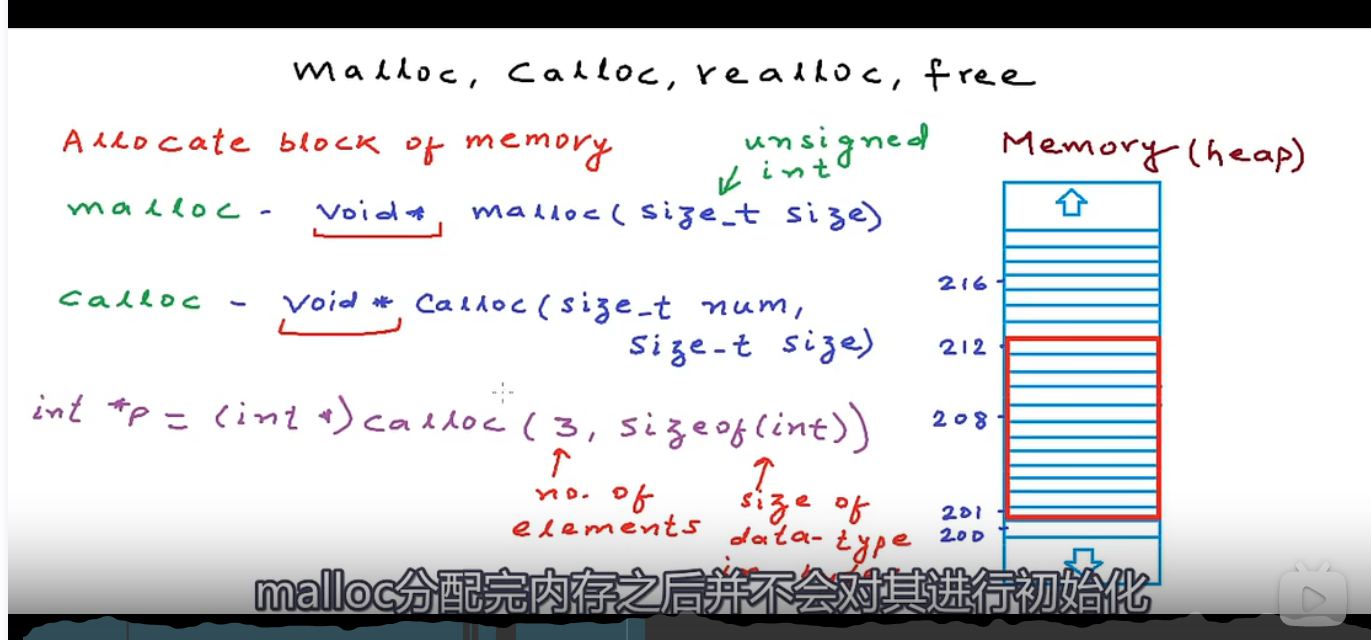 malloc, calloc, realloc, free
Allocate block of memory
unsigned
int
malloc - void* malloc(size_t size)
calloc - void* calloc(size_t num,
size_t size)
int *p = (int *)calloc(3, sizeof(int))
no. of
elements
size of
data-type
Memory(heap)
216
212
208
201
200
malloc分配完内存之后并不会对其进行初始化